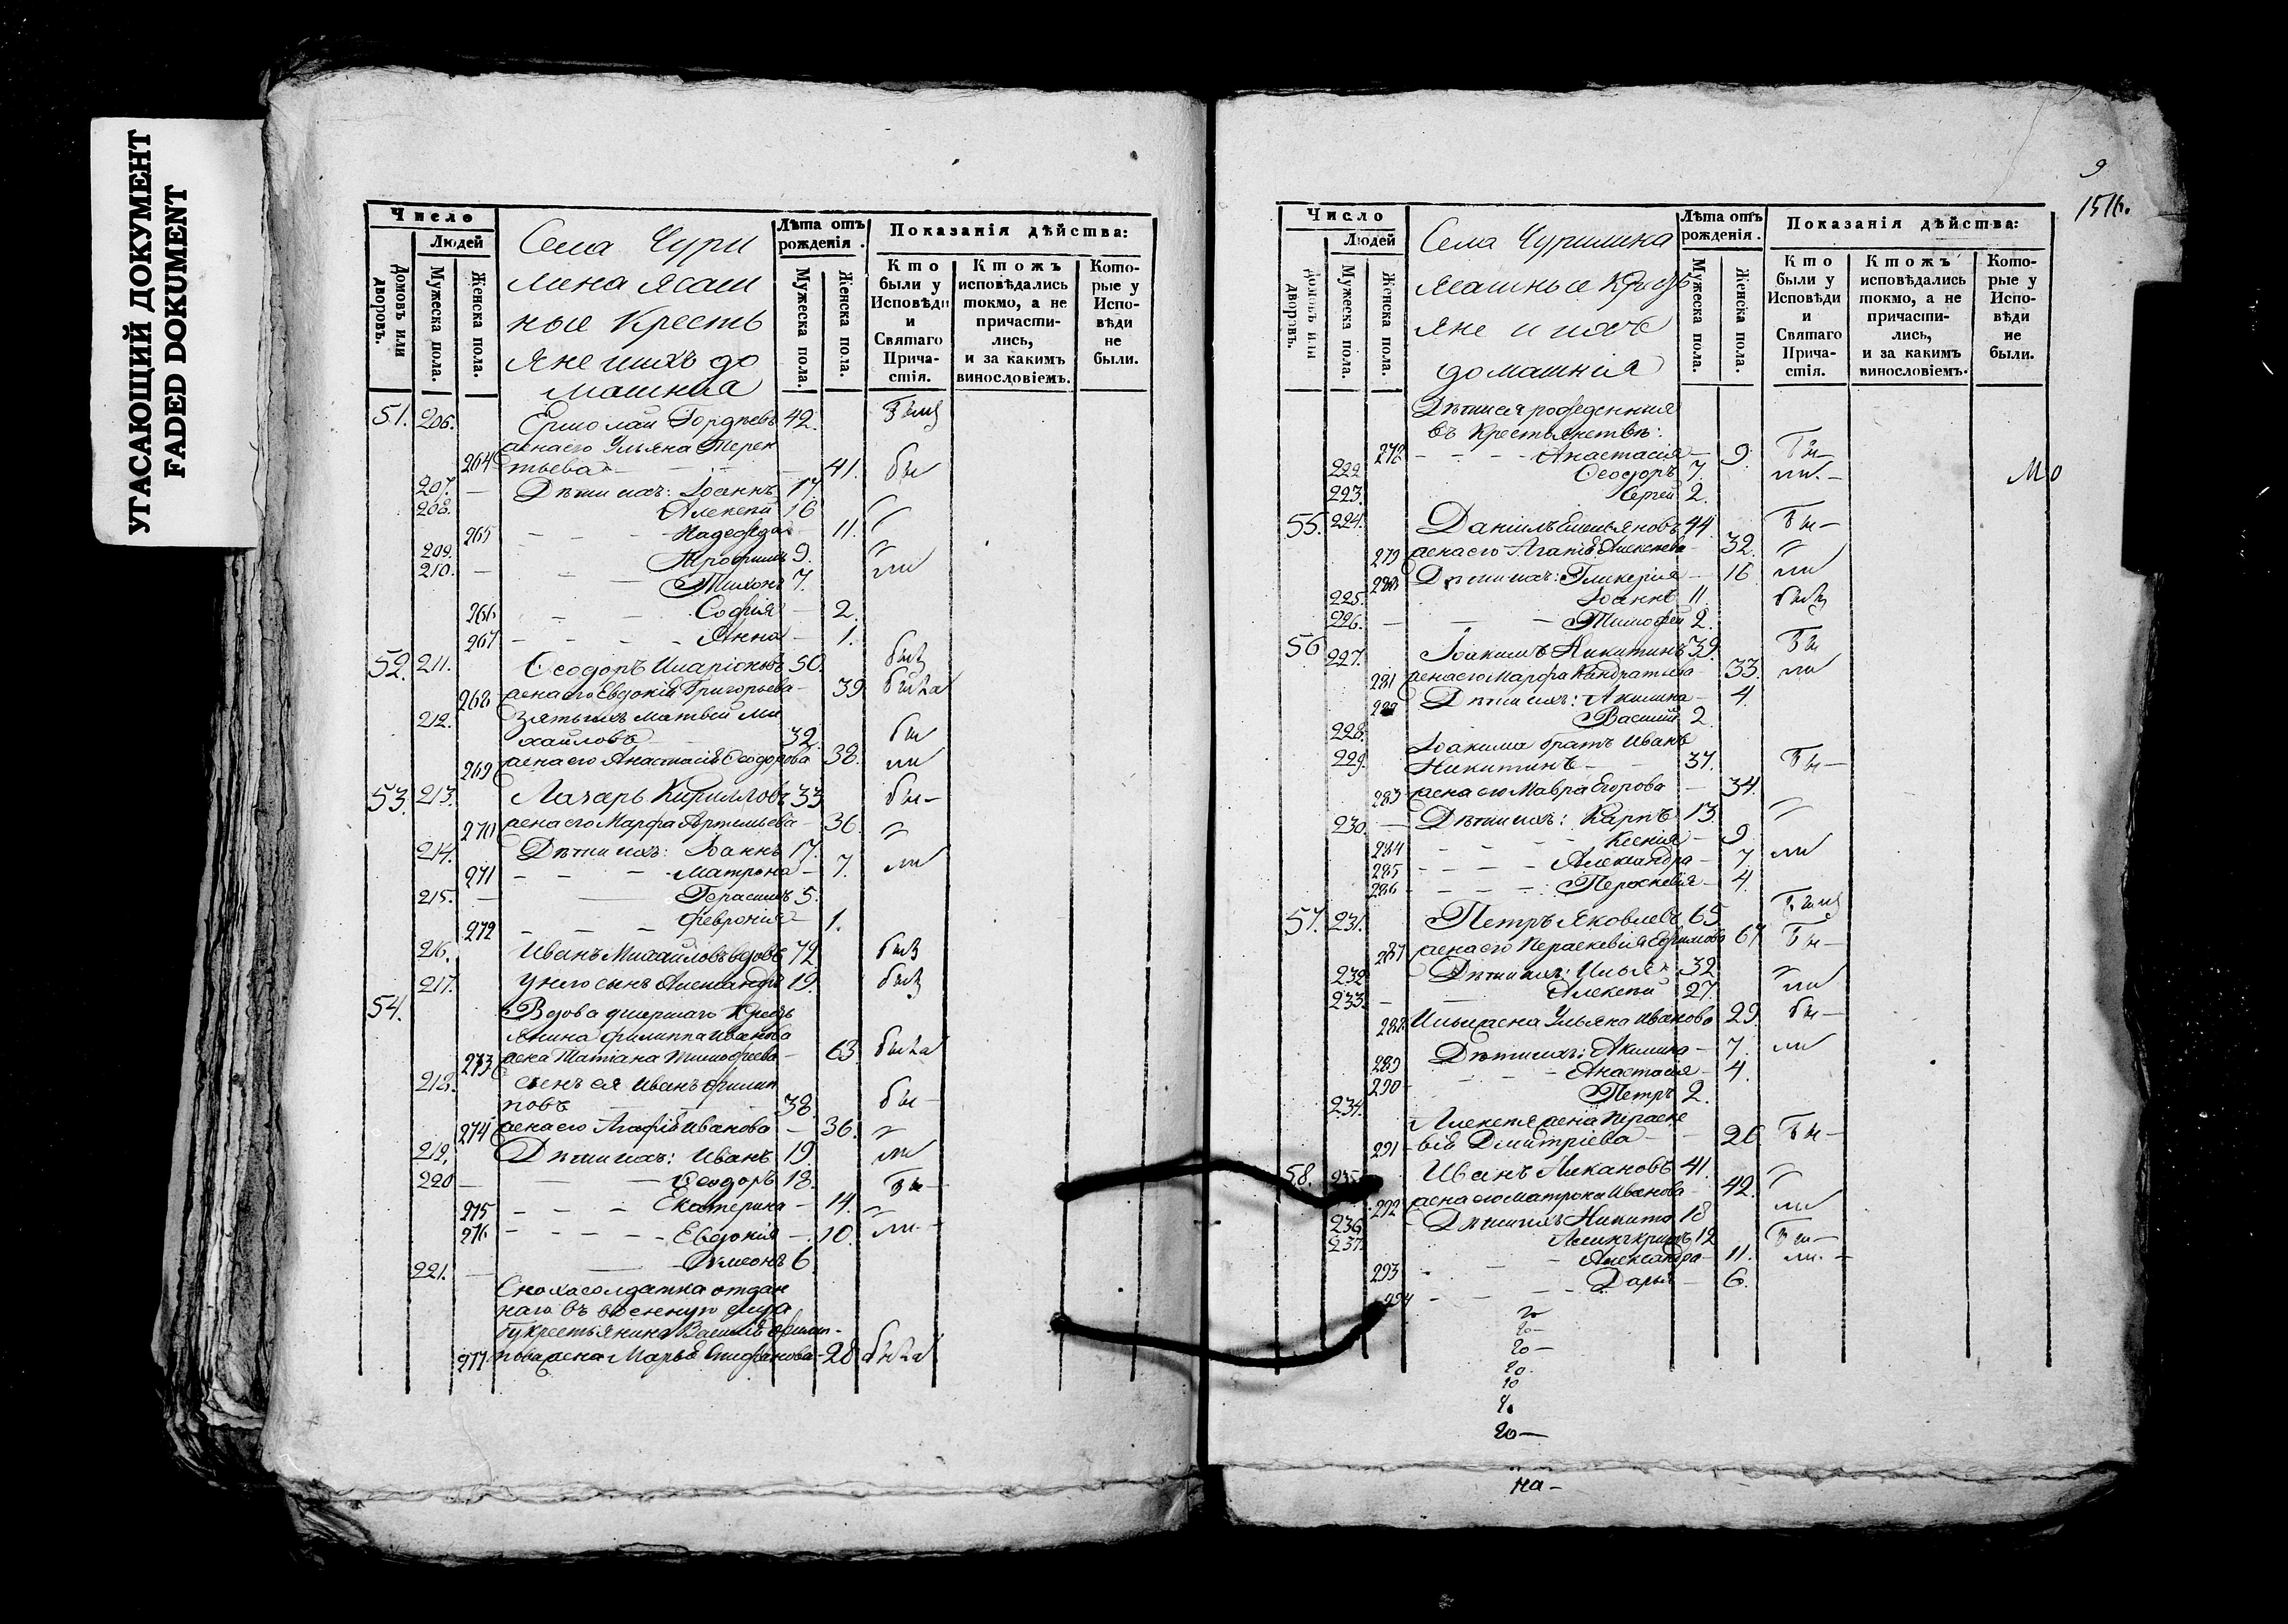 УГАСАЮЩИЙ ДОКУМЕНТ
FADED DOKUMENT
Число
Людей
Домовъ или дворовъ.
Мужеска пола.
Женска пола.
Села Чури
лина ясаш
ные Кресть
яне ихъ до
машнiа
Лѣта отъ рожденія.
Мужеска пола.
Женска пола.
Показанія дѣйства:
Кто были у Исповѣди и Святаго Прича-стія.
Ктожъ исповѣдались токмо, а не причасти-лись, и за какимъ винословіемъ.
Кото-рые у Испо-вѣди не были.
51. 206. Ермолай Гордѣевъ 42.
жена его Ульяна Терен
264 тьева 41. бы
207. Дѣти ихъ: Іоаннъ 17.
208. Алексѣй 16
265 Надежда 11.
209. Трофимъ 9.
210. Тихонъ 7. ли
266 Софія 2.
267 Анна 1.
52. 211. Ѳеодоръ Иларіоновъ 50.
268 жена его Евдокія Григорьева 39 была
212. Зять ихъ Матвей Ми
хайловъ 32. бы
269 жена его Анастасія Ѳеодорова 38. ли
53. 213. Лазарь Кирилловъ 33 бы
270 жена его Марѳа Артемьева 36.
214. Дѣти ихъ: Іоаннъ 17.
271 Матрона 7. ли
215. Герасимъ 5.
272 Феврония 1.
216. Иванъ Михайловъ вдовъ 72.
217. У него сынъ Александръ 19.
54. Вдова умершаго Кресть
янина Филиппа Иванова
273 жена Татіана Тимофеева 63 была
218. сынъ ея Иванъ Филип
повъ 38. бы
274 жена его Агафія Иванова 36.
219. Дѣти ихъ: Иванъ 19 ли
220 Ѳеодоръ 18. Бы
275 Екатерина 14.
276 Евдокія 10. ли
221. Симеонъ 6
Сноха солдатка отдан
наго въ военную служ
бу крестьянина Василія Филип
277 пова жена Марья Стефанова 28 была
9
1516.
Число
Людей
Домовъ или дворовъ.
Мужеска пола.
Женска пола.
Села Чурилина
ясашные Кресть
яне и ихъ
домашнія
Лѣта отъ рожденія.
Мужеска пола.
Женска пола.
Показанія дѣйства:
Кто были у Исповѣди и Святаго Прича-стія.
Ктожъ исповѣдались токмо, а не причасти-лись, и за какимъ винословіемъ.
Кото-рые у Испо-вѣди не были.
Дѣти ея рожденныя
въ Крестьянствѣ:
278 Анастасія 9 Бы
222. Ѳеодоръ 7. ли
223. Сергей 2.
55. 224. Даніилъ Емельяновъ 44 Бы
279 жена его Агапія Алексѣева 32.
280 Дѣти ихъ: Гликерія 16 ли
225. Іоаннъ 11.
226. Тимофей 2.
56 227. Іоакимъ Никитинъ 39. Бы
281 жена его Марѳа Кондратьева 33. ли
282 Дѣти ихъ: Акилина 4.
228. Василий 2.
Іоакима братъ Иванъ
229. Никитинъ 37. Бы
283 жена его Мавра Егорова 34.
230. Дѣти ихъ: Карпъ 13.
284 Ксенія 9
285 Александра 7 ли
286 Параскевія 4.
57. 231. Петръ Яковлевъ 65.
287 жена его Параскевія Ефимова 67 Бы
232 Дѣти ихъ: Илья 32
233. Алексѣй 27. ли
288 Ильи жена Ульяна Иванова 29. бы
289 Дѣти ихъ: Акилина 7. ли
290 Анастасія 4.
234. Петръ 2.
Алексѣя жена Параске
291 вія Дмитріева 26 Бы
58. 235. Иванъ Ликановъ 41.
292 жена его Матрона Иванова 42. ли
236 Дѣти ихъ Никита 18
237. 12 Бы
293 Александра 11. ли
294 Дарья 6.
20
20
20
20
20
20
на